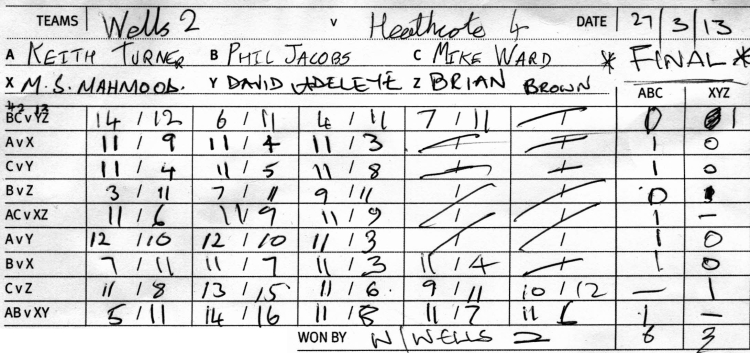 TEAMS Wells 2 v Heathcote 4 DATE 27/3/13
A KEITH TURNER B PHIL JACOBS C MIKE WARD * FINAL *
X M.S. MAHMOOD. Y DAVID ADELEYE Z BRIAN BROWN ABC XYZ
BCvYZ 14/12 6/11 4/11 7/11 / 0 1
AvX 11/9 11/4 11/3 / / 1 0
CvY 11/4 11/5 11/8 / / 1 0
BvZ 3/11 7/11 9/11 / / 0 1
ACvXZ 11/6 11/9 11/9 / / 1 -
AvY 12/10 12/10 11/3 / / 1 0
BvX 7/11 11/7 11/3 11/4 / 1 0
CvZ 11/8 13/15 11/6 9/11 10/12 - 1
ABvXY 5/11 14/16 11/8 11/7 11 6 1 -
WON BY WELLS 2 6 3